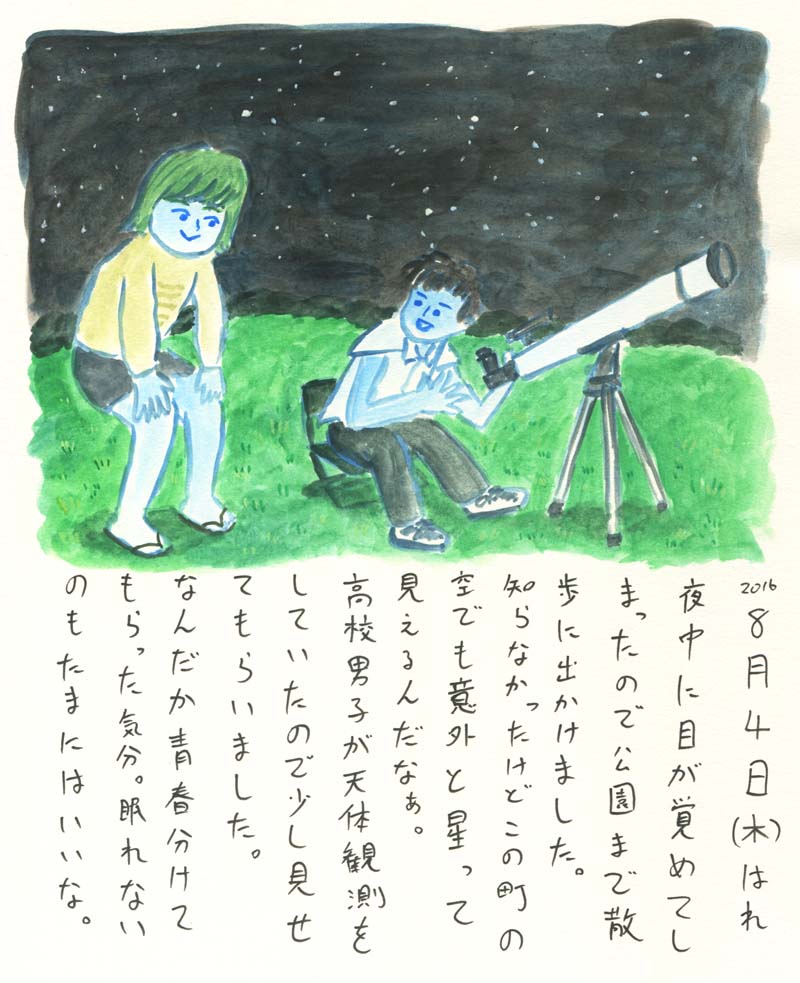 2016
8月4日(木)はれ
夜中に目が覚めてし
まったので公園まで散
歩に出かけました。
知らなかったけどこの町の
空でも意外と星って
見えるんだなぁ。
高校男子が天体観測を
していたので少し見せ
てもらいました。
なんだか青春分けて
もらった気分。眠れない
のもたまにはいいな。